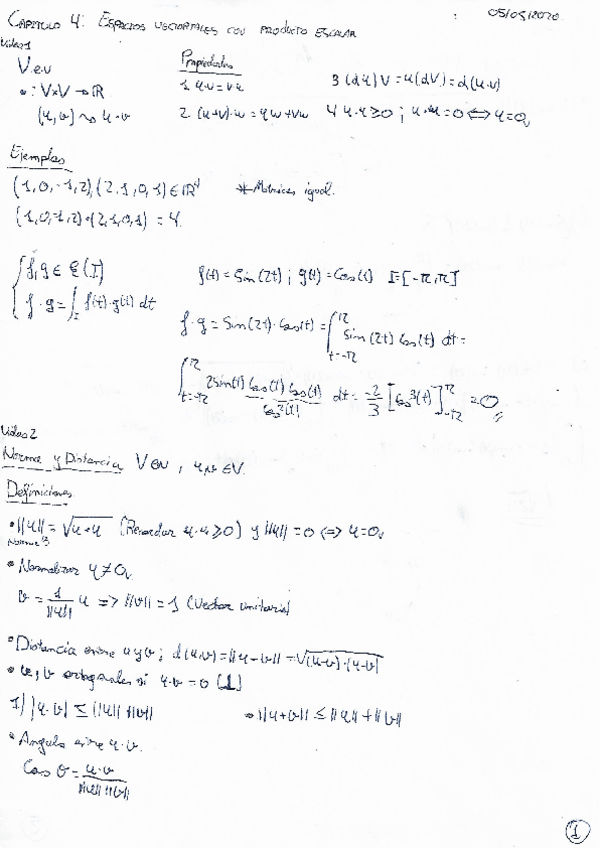 CAPITULO 4: ESPACIOS VECTORIALES CON PRODUCTO ESCALAR
05/05/2020
Video 1
V.e.v
• : V×V → ℝ
(u,v) ~> u·v
Propiedades
1. u·v = v·u
2. (u+v)·w = u·w + v·w
3 (αu)V = u(αV) = α(u·v)
4 u·u ≥ 0 ; u·u = 0 <=> u = 0ᵥ
Ejemplos
(1,0,-1,2), (2,1,0,1) ∈ ℝ⁴ * Matrices igual.
(1,0,-1,2)·(2,1,0,1) = 4.
{ f,g ∈ C(I)
f·g = ∫_I f(t)·g(t) dt
f(t) = Sin(2t) ; g(t) = Cos(t) I = [-π,π]
f·g = Sin(2t)·Cos(t) = ∫_{t=-π}^{π} Sin(2t) Cos(t) dt =
∫_{t=-π}^{π} 2Sin(t) Cos(t) Cos(t) dt = -2/3 [Cos³(t)]_{-π}^{π} = 0
Cos²(t)
Video 2
Norma y Distancia V e.v , u,v ∈ V.
Definiciones
• ||u|| = √u·u (Recordar u·u ≥ 0) y ||u|| = 0 <=> u = 0ᵥ
• Normalizar u ≠ 0ᵥ
v = 1/||u|| u => ||v|| = 1 (Vector unitario)
• Distancia entre u y v ; d(u,v) = ||u-v|| = √(u-v)·(u-v)
• u, v ortogonales si u·v = 0 (⊥)
1) |u·v| ≤ ||u|| ||v||
• ||u+v|| ≤ ||u|| + ||v||
• Angulo entre u·v.
Cos θ = u·v / ||u|| ||v||
1